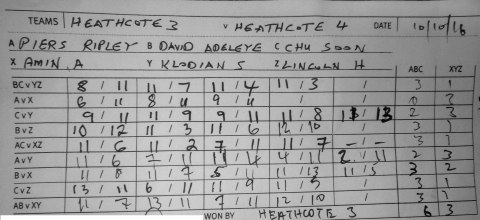 TEAMS HEATHCOTE 3 V HEATHCOTE 4 DATE 10/10/16
A PIERS RIPLEY B DAVID ADELEYE C CHU SOON
X AMIN. A Y KLODIAN S Z LINCOLN H
ABC XYZ
BCvYZ 8 / 11 11 / 7 11 / 4 11 / 3 / 3 1
AvX 6 / 11 8 / 11 9 / 11 / / 0 3
CvY 9 / 11 11 / 9 9 / 11 11 / 8 / 13 2 3
BvZ 10 / 12 11 / 3 11 / 6 12 / 10 / 3 1
ACvXZ 11 / 6 11 / 2 7 / 11 11 / 7 - / - 3 1
AvY 11 / 6 7 / 11 11 / 4 4 / 11 2 / 11 2 3
BvX 11 / 8 11 / 7 5 / 11 11 / 13 11 / 5 3 2
CvZ 13 / 11 6 / 11 11 / 9 11 / / 3 1
ABvXY 11 / 7 13 / 11 7 / 11 12 / 10 / 3 1
WON BY HEATHCOTE 3 6 3